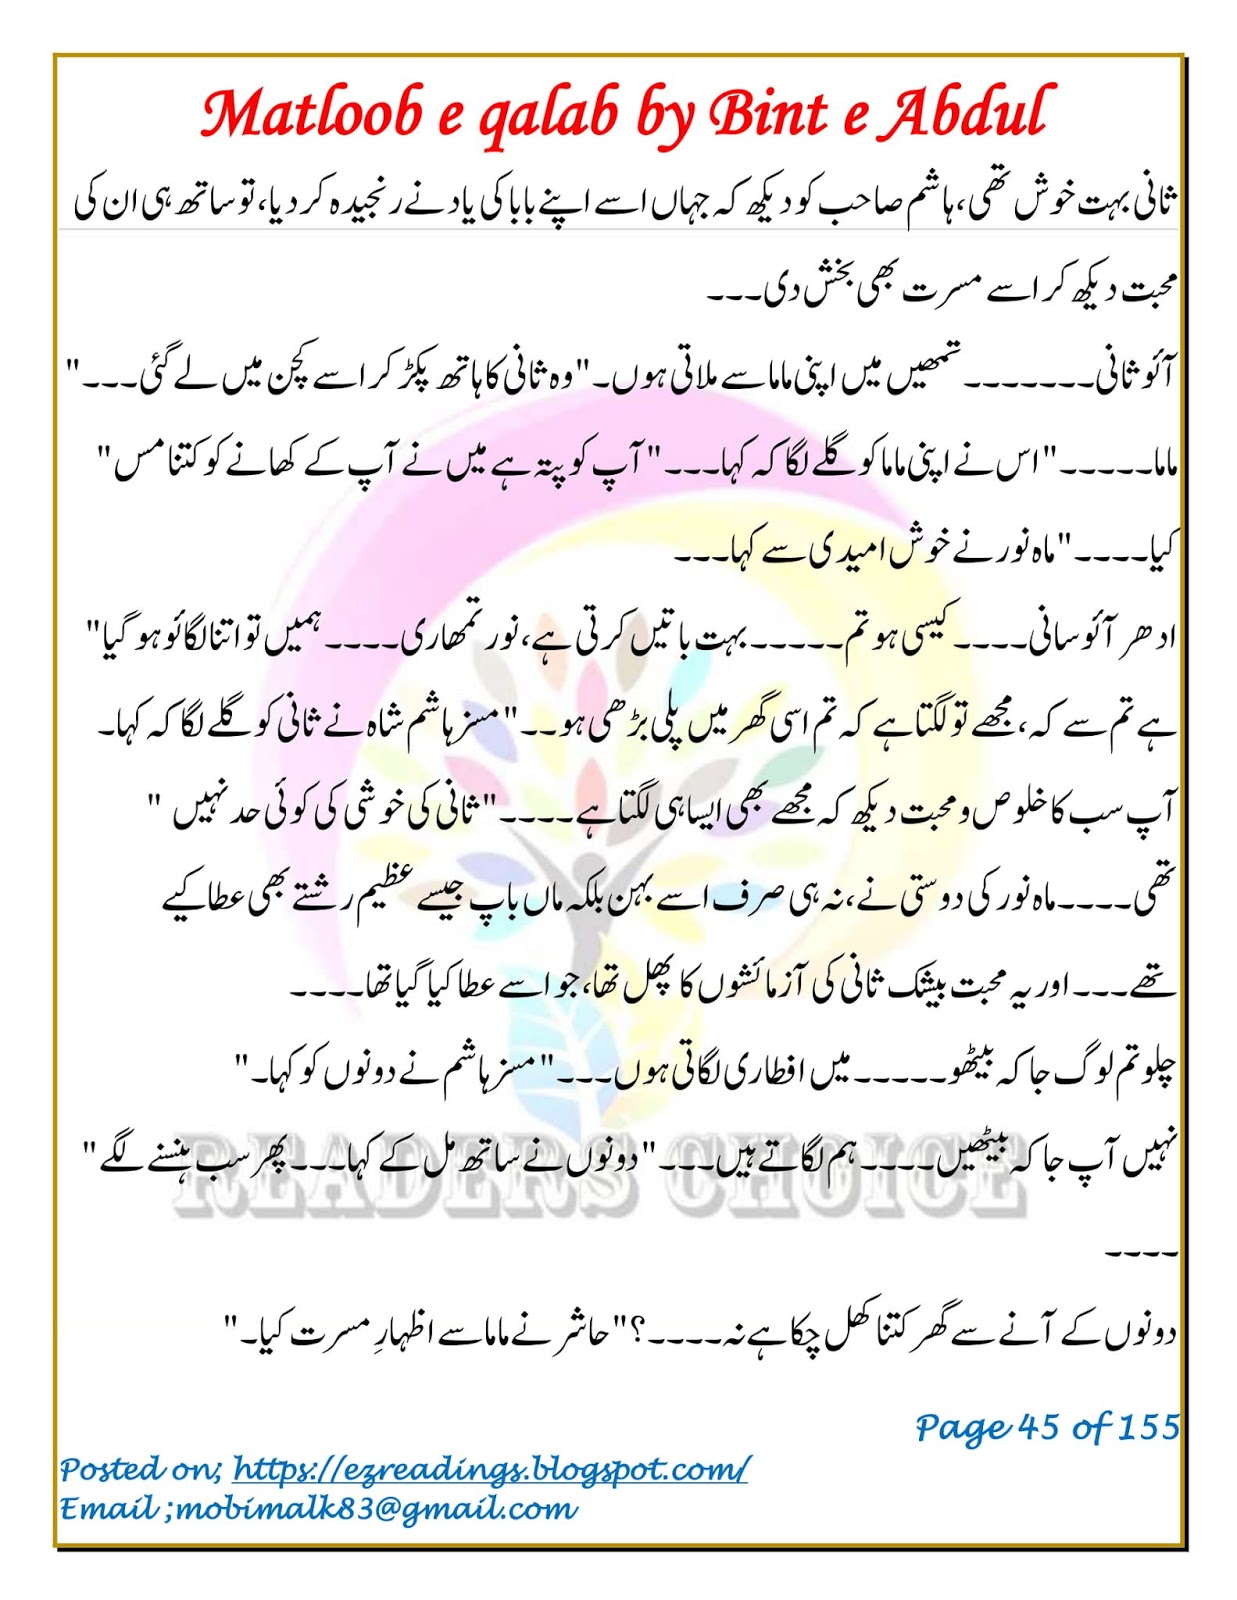 Matloob e qalab by Bint e Abdul
ثانی بہت خوش تھی، ہاشم صاحب کو دیکھ کہ جہاں اسے اپنے بابا کی یاد نے رنجیدہ کر دیا، تو ساتھ ہی ان کی
محبت دیکھ کر اسے مسرت بھی بخش دی۔۔۔
آئو ثانی۔۔۔۔۔۔۔ تمھیں میں اپنی ماما سے ملاتی ہوں۔"وہ ثانی کا ہاتھ پکڑ کر اسے کچن میں لے گئی۔۔۔"
ماما۔۔۔۔۔"اس نے اپنی ماما کو گلے لگا کہ کہا۔۔۔"آپ کو پتہ ہے میں نے آپ کے کھانے کو کتنا مس"
کیا۔۔۔۔"ماہ نور نے خوش امیدی سے کہا۔۔۔
ادھر آئو سانی۔۔۔۔کیسی ہو تم۔۔۔۔۔بہت باتیں کرتی ہے، نور تمھاری۔۔۔۔ہمیں تو اتنا لگائو ہو گیا"
ہے تم سے کہ، مجھے تو لگتا ہے کہ تم اسی گھر میں پلی بڑھی ہو۔۔"مسز ہاشم شاہ نے ثانی کو گلے لگا کہ کہا۔
آپ سب کا خلوص و محبت دیکھ کہ مجھے بھی ایسا ہی لگتا ہے۔۔۔۔"ثانی کی خوشی کی کوئی حد نہیں "
تھی۔۔۔۔ماہ نور کی دوستی نے، نہ ہی صرف اسے بہن بلکہ ماں باپ جیسے عظیم رشتے بھی عطا کیے
تھے۔۔۔اور یہ محبت بیشک ثانی کی آزمائشوں کا پھل تھا، جو اسے عطا کیا گیا تھا۔۔۔۔
چلو تم لوگ جا کہ بیٹھو۔۔۔۔۔میں افطاری لگاتی ہوں۔۔۔"مسز ہاشم نے دونوں کو کہا۔"
نہیں آپ جا کہ بیٹھیں۔۔۔۔ہم لگاتے ہیں۔۔۔"دونوں نے ساتھ مل کے کہا۔۔۔پھر سب ہنسنے لگے "
۔۔۔۔
دونوں کے آنے سے گھر کتنا کھل چکا ہے نہ۔۔۔۔؟"حاشر نے ماما سے اظہارِ مسرت کیا۔"
READERS CHOICE
Page 45 of 155
Posted on; https://ezreadings.blogspot.com/
Email ;mobimalk83@gmail.com